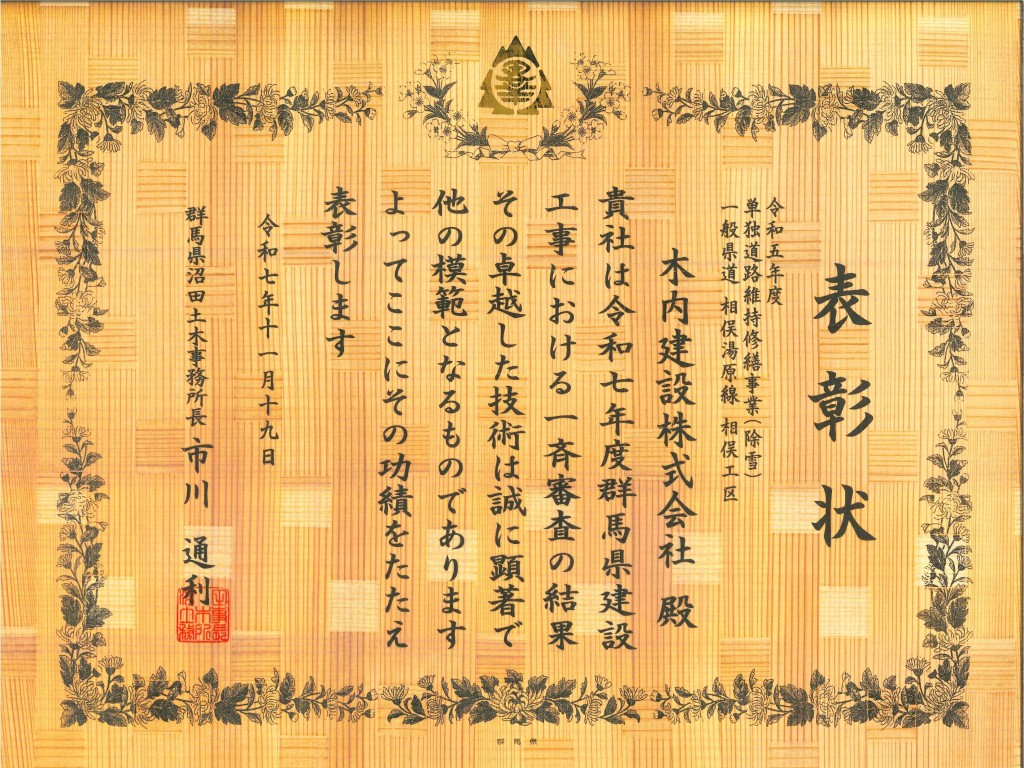 表彰状
令和五年度
単独道路維持修繕事業(除雪)
一般県道 相俣湯原線 相俣工区
木内建設株式会社 殿
貴社は令和七年度群馬県建設
工事における一斉審査の結果
その卓越した技術は誠に顕著で
他の模範となるものであります
よってここにその功績をたたえ
表彰します
令和七年十一月十九日
群馬県沼田土木事務所長 市川 通利
群馬県